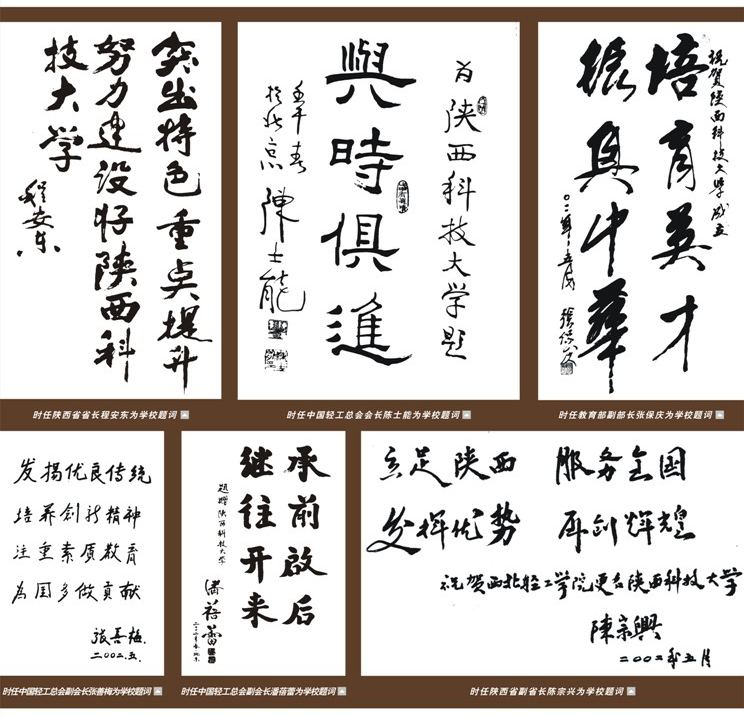 突出特色重点提升
努力建设好陕西科
技大学
程安东
为陕西科技大学题
與時俱進
壬午春
於北京 陳士能
祝贺陕西科技大学成立
培育英才
振興中華
二〇〇二年五月 張保庆
时任陕西省省长程安东为学校题词
时任中国轻工总会会长陈士能为学校题词
时任教育部副部长张保庆为学校题词
发揚优良传统
培养创新精神
注重素质教育
为国多做贡献
张善梅
二〇〇二.五.
承前啟后
继往开来
题赠陕西科技大学
潘蓓蕾
立足陕西 服务全国
发挥优势 再创辉煌
祝贺西北轻工学院更名陕西科技大学
陳宗興
二〇〇二年五月
时任中国轻工总会副会长张善梅为学校题词
时任中国轻工总会副会长潘蓓蕾为学校题词
时任陕西省副省长陈宗兴为学校题词